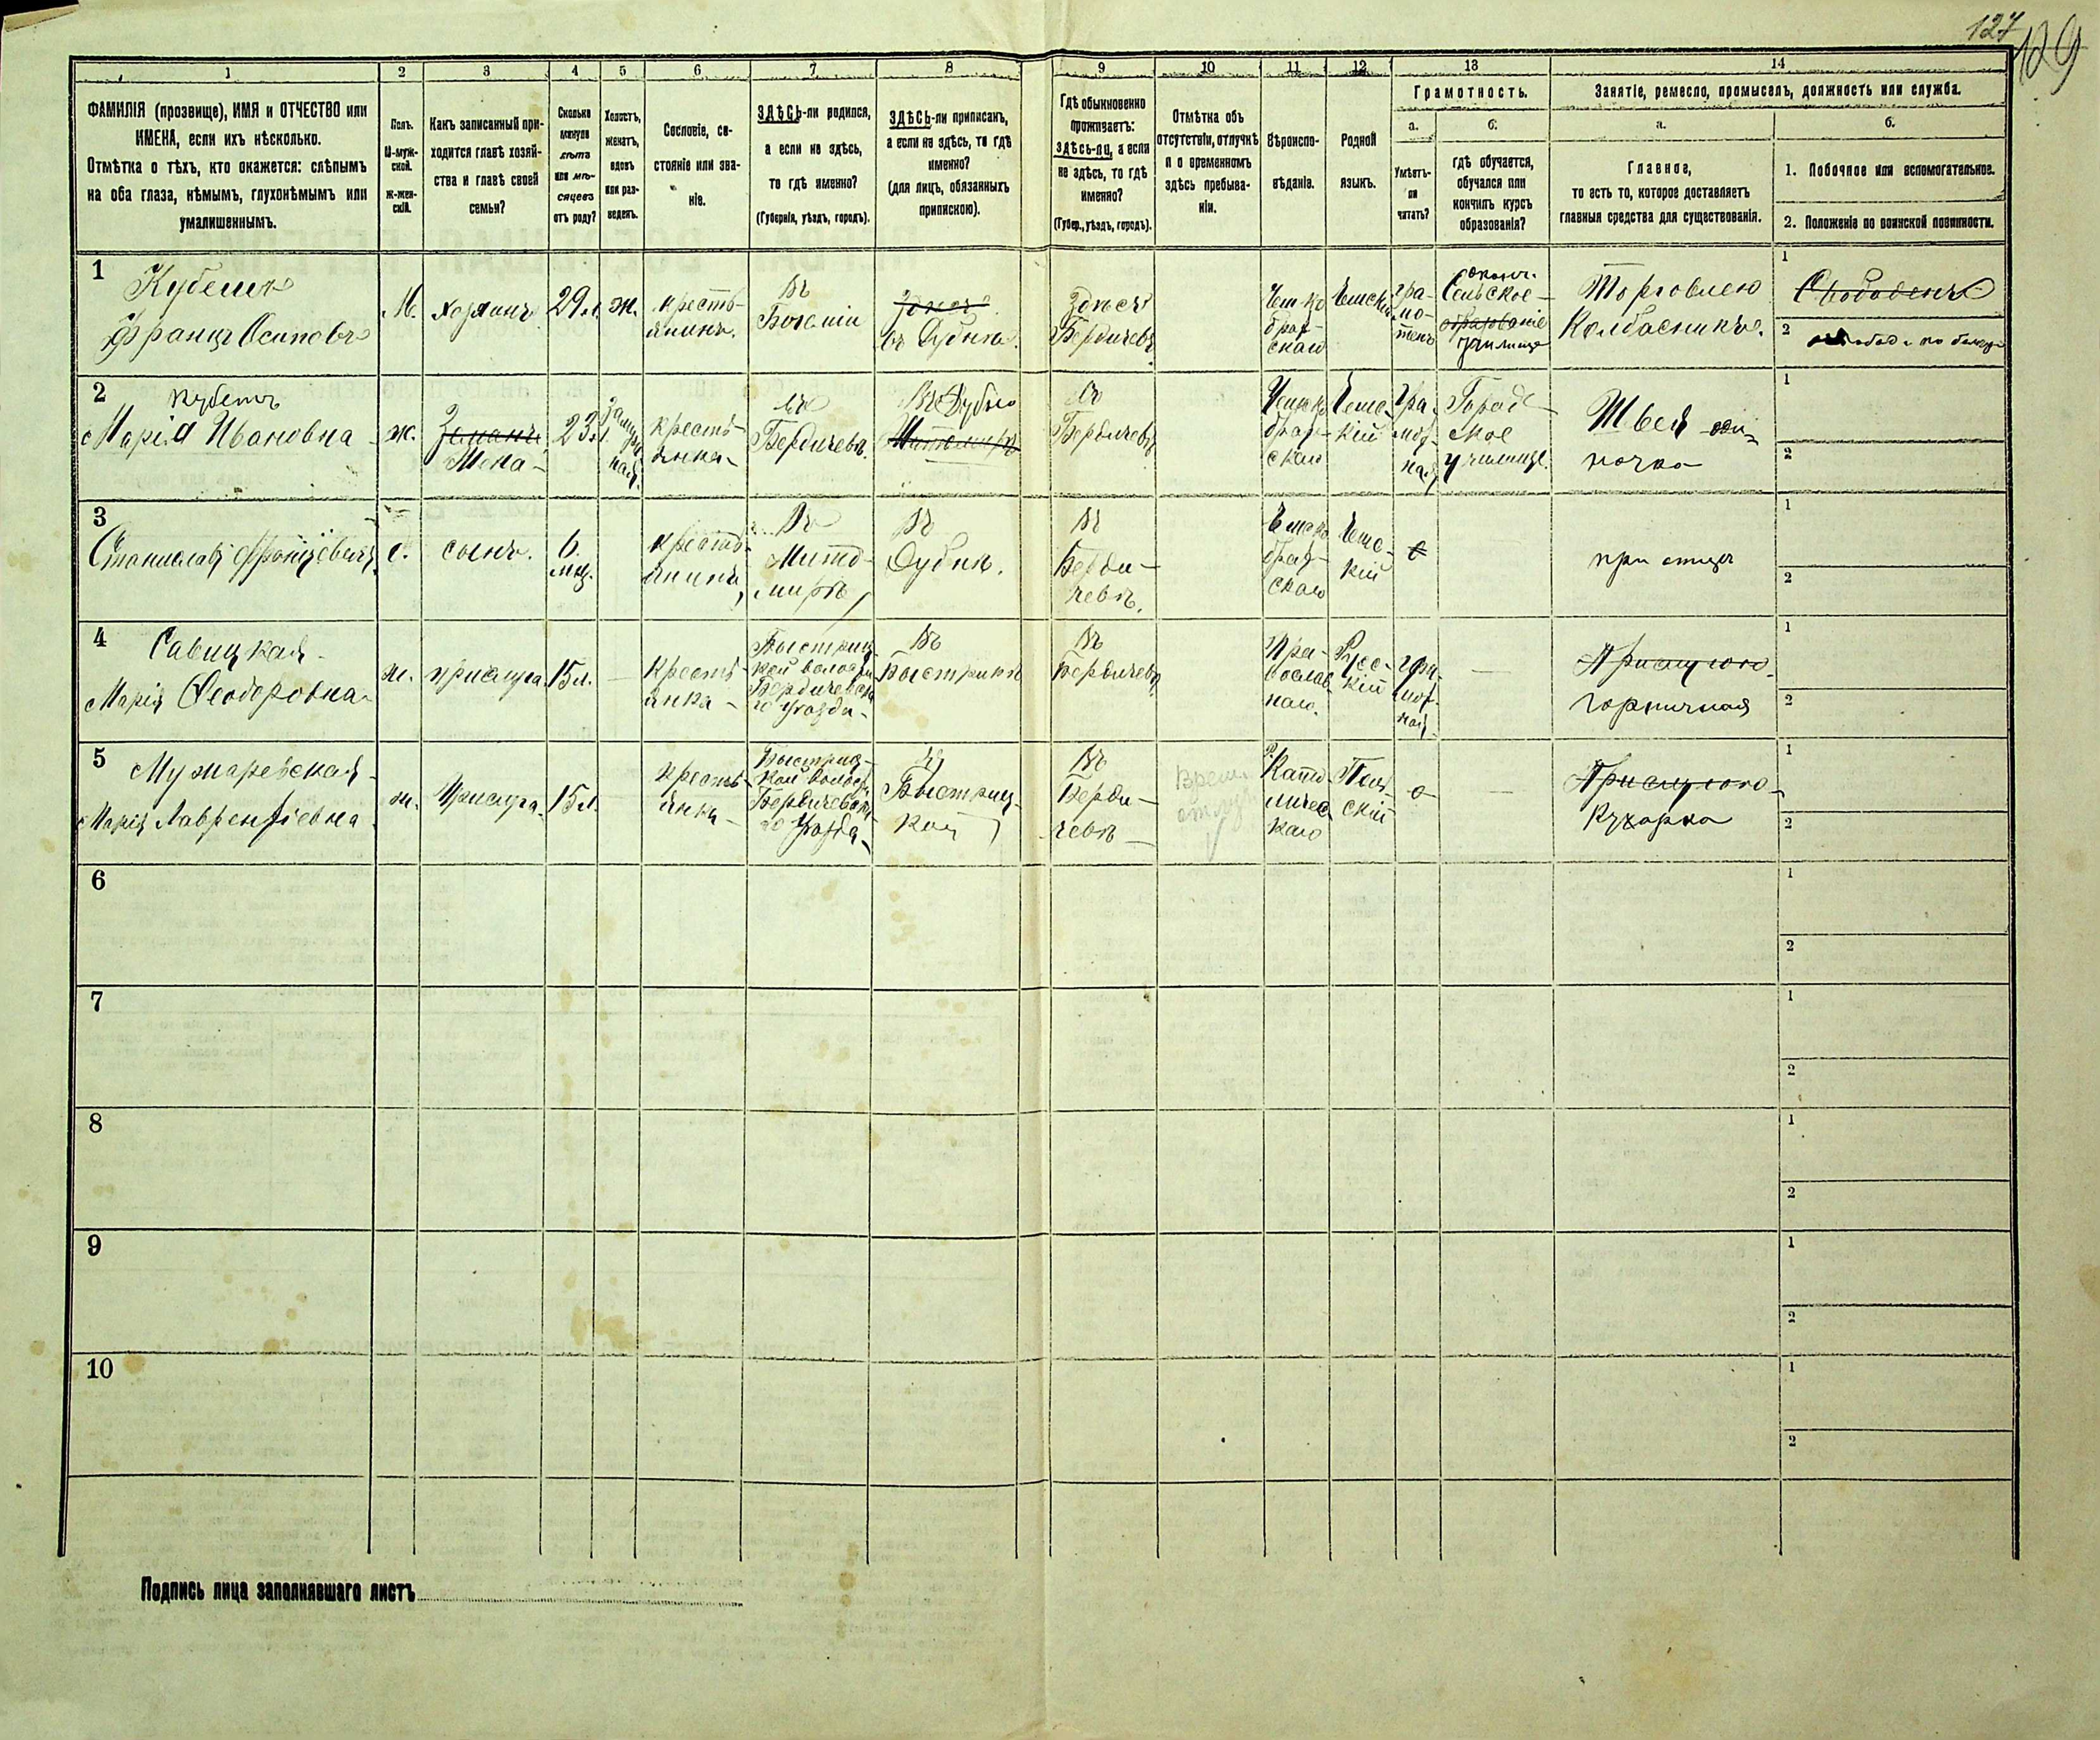 127
129
1 2 3 4 5 6 7 8 9 10 11 12 13 14
ФАМИЛІЯ (прозвище), ИМЯ и ОТЧЕСТВО или
ИМЕНА, если ихъ нѣсколько.
Отмѣтка о тѣхъ, кто окажется: слѣпымъ
на оба глаза, нѣмымъ, глухонѣмымъ или
умалишеннымъ.
Полъ.
М-муж-
ской.
Ж-жен-
скій.
Какъ записанный при-
ходится главѣ хозяй-
ства и главѣ своей
семьи?
Сколько
минуло
лѣтъ
или мѣ-
сяцевъ
отъ роду?
Холостъ,
женатъ,
вдовъ
или раз-
веденъ.
Сословіе, со-
стояніе или зва-
ніе.
ЗДѢСЬ-ли родился,
а если не здѣсь,
то гдѣ именно?
(Губернія, уѣздъ, городъ).
ЗДѢСЬ-ли приписанъ,
а если не здѣсь, то гдѣ
именно?
(для лицъ, обязанныхъ
припискою).
Гдѣ обыкновенно
проживаетъ:
здѣсь-ли, а если
не здѣсь, то гдѣ
именно?
(Губер., уѣздъ, городъ).
Отмѣтка объ
отсутствіи, отлучкѣ
и о временномъ
здѣсь пребыва-
ніи.
Вѣроиспо-
вѣданіе.
Родной
языкъ.
Грамотность.
а.
Умѣетъ-
ли
читать?
б.
гдѣ обучается,
обучался или
кончилъ курсъ
образованія?
Занятіе, ремесло, промыселъ, должность или служба.
а.
Главное,
то есть то, которое доставляетъ
главныя средства для существованія.
б.
1. Побочное или вспомогательное.
2. Положеніе по воинской повинности.
1
Францъ Осиповъ
М.
29 л.
ж.
крестъ-
янинъ.
Въ
Богеміи
здѣсь
въ Дубнѣ.
Здѣсь
Бердичевъ
Чешско
брат-
скаго
Чешскій
гра-
мо-
тенъ
Сельское
образованіе
училище
Торговлею
Колбасникъ.
1
Свободенъ
2
2
Марія Ивановна
ж.
Жена
23 л.
крестъ-
янка
въ
Бердичевѣ.
Въ Дубно
Житомиръ
Въ
Бердичевѣ
Чешско
брат-
скаго
Чеш-
кій
Гра-
мот-
ная
Город-
ское
училище.
Швея оди-
ночка
1
2
3
Станиславъ Францевичъ
сынъ.
6.
мѣц.
крестъ-
янинъ,
Въ
Жито-
мирѣ,
Въ
Дубнѣ.
Въ
Берди-
чевѣ.
Чешско
брат-
скаго
Чеш-
кій
при отцѣ
1
2
4
Савицкая
Марія Феодоровна
ж.
прислуга.
15 л.
Крестъ-
янка
Быстриц-
кой волости
Бердичевска-
го уѣзда
Въ
Въ
Бердичевѣ
Пра-
вослав-
наго.
Рус-
кій
гра-
мот-
ная
Прислугою
горничная
1
2
5
Марія Лаврентіевна
ж.
Прислуга.
15 л.
крестъ-
янка
Быстриц-
кой волости
Бердичевска-
го уѣзда
Быстриц-
кой
Въ
Берди-
чевѣ
Врем.
Р. Като
личес
каго
Поль
скій
Прислугою
Кухарка
1
2
6
1
2
7
1
2
8
1
2
9
1
2
10
1
2
Подпись лица заполнявшаго листъ